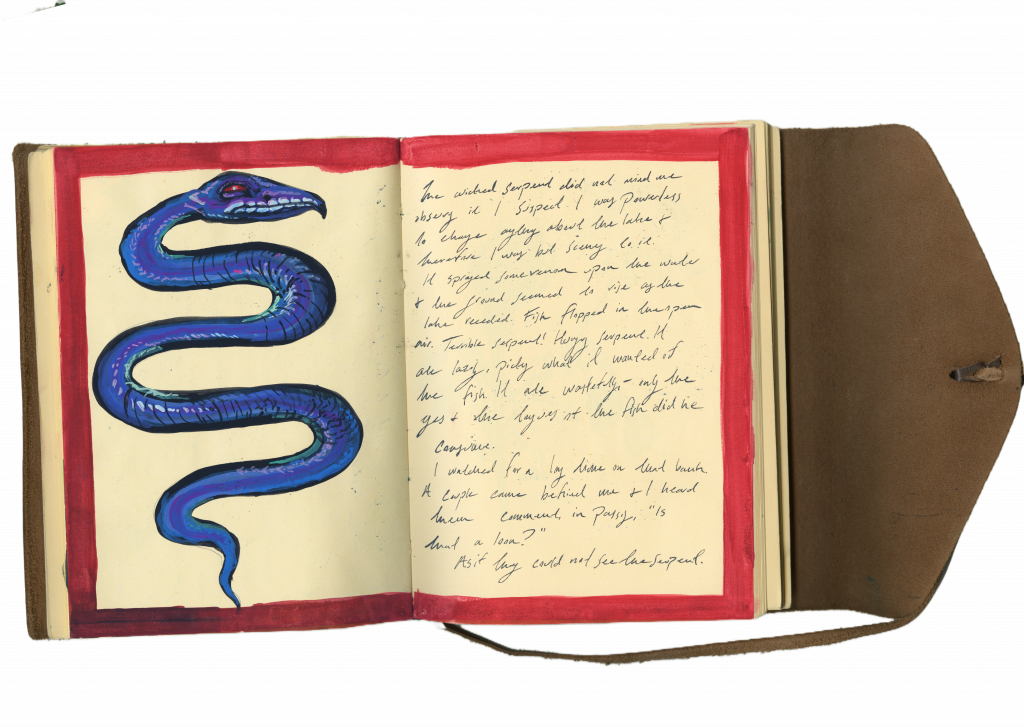 The wicked serpent did not mind me
observing it I suspect. I was powerless
to change anything about the lake &
therefore I was but scenery to it.
It sprayed some venom upon the water
& the ground seemed to rise as the
lake receded. Fish flopped in the open
air. Terrible serpent! Hungry serpent. It
ate lazily, picking what it wanted of
the fish. It ate wastefully – only the
eyes & the tongues of the fish did he
consume.
I watched for a long time on that bank.
A couple came behind me & I heard
them comment, in passing, "Is
that a loon?"
As if they could not see the serpent.